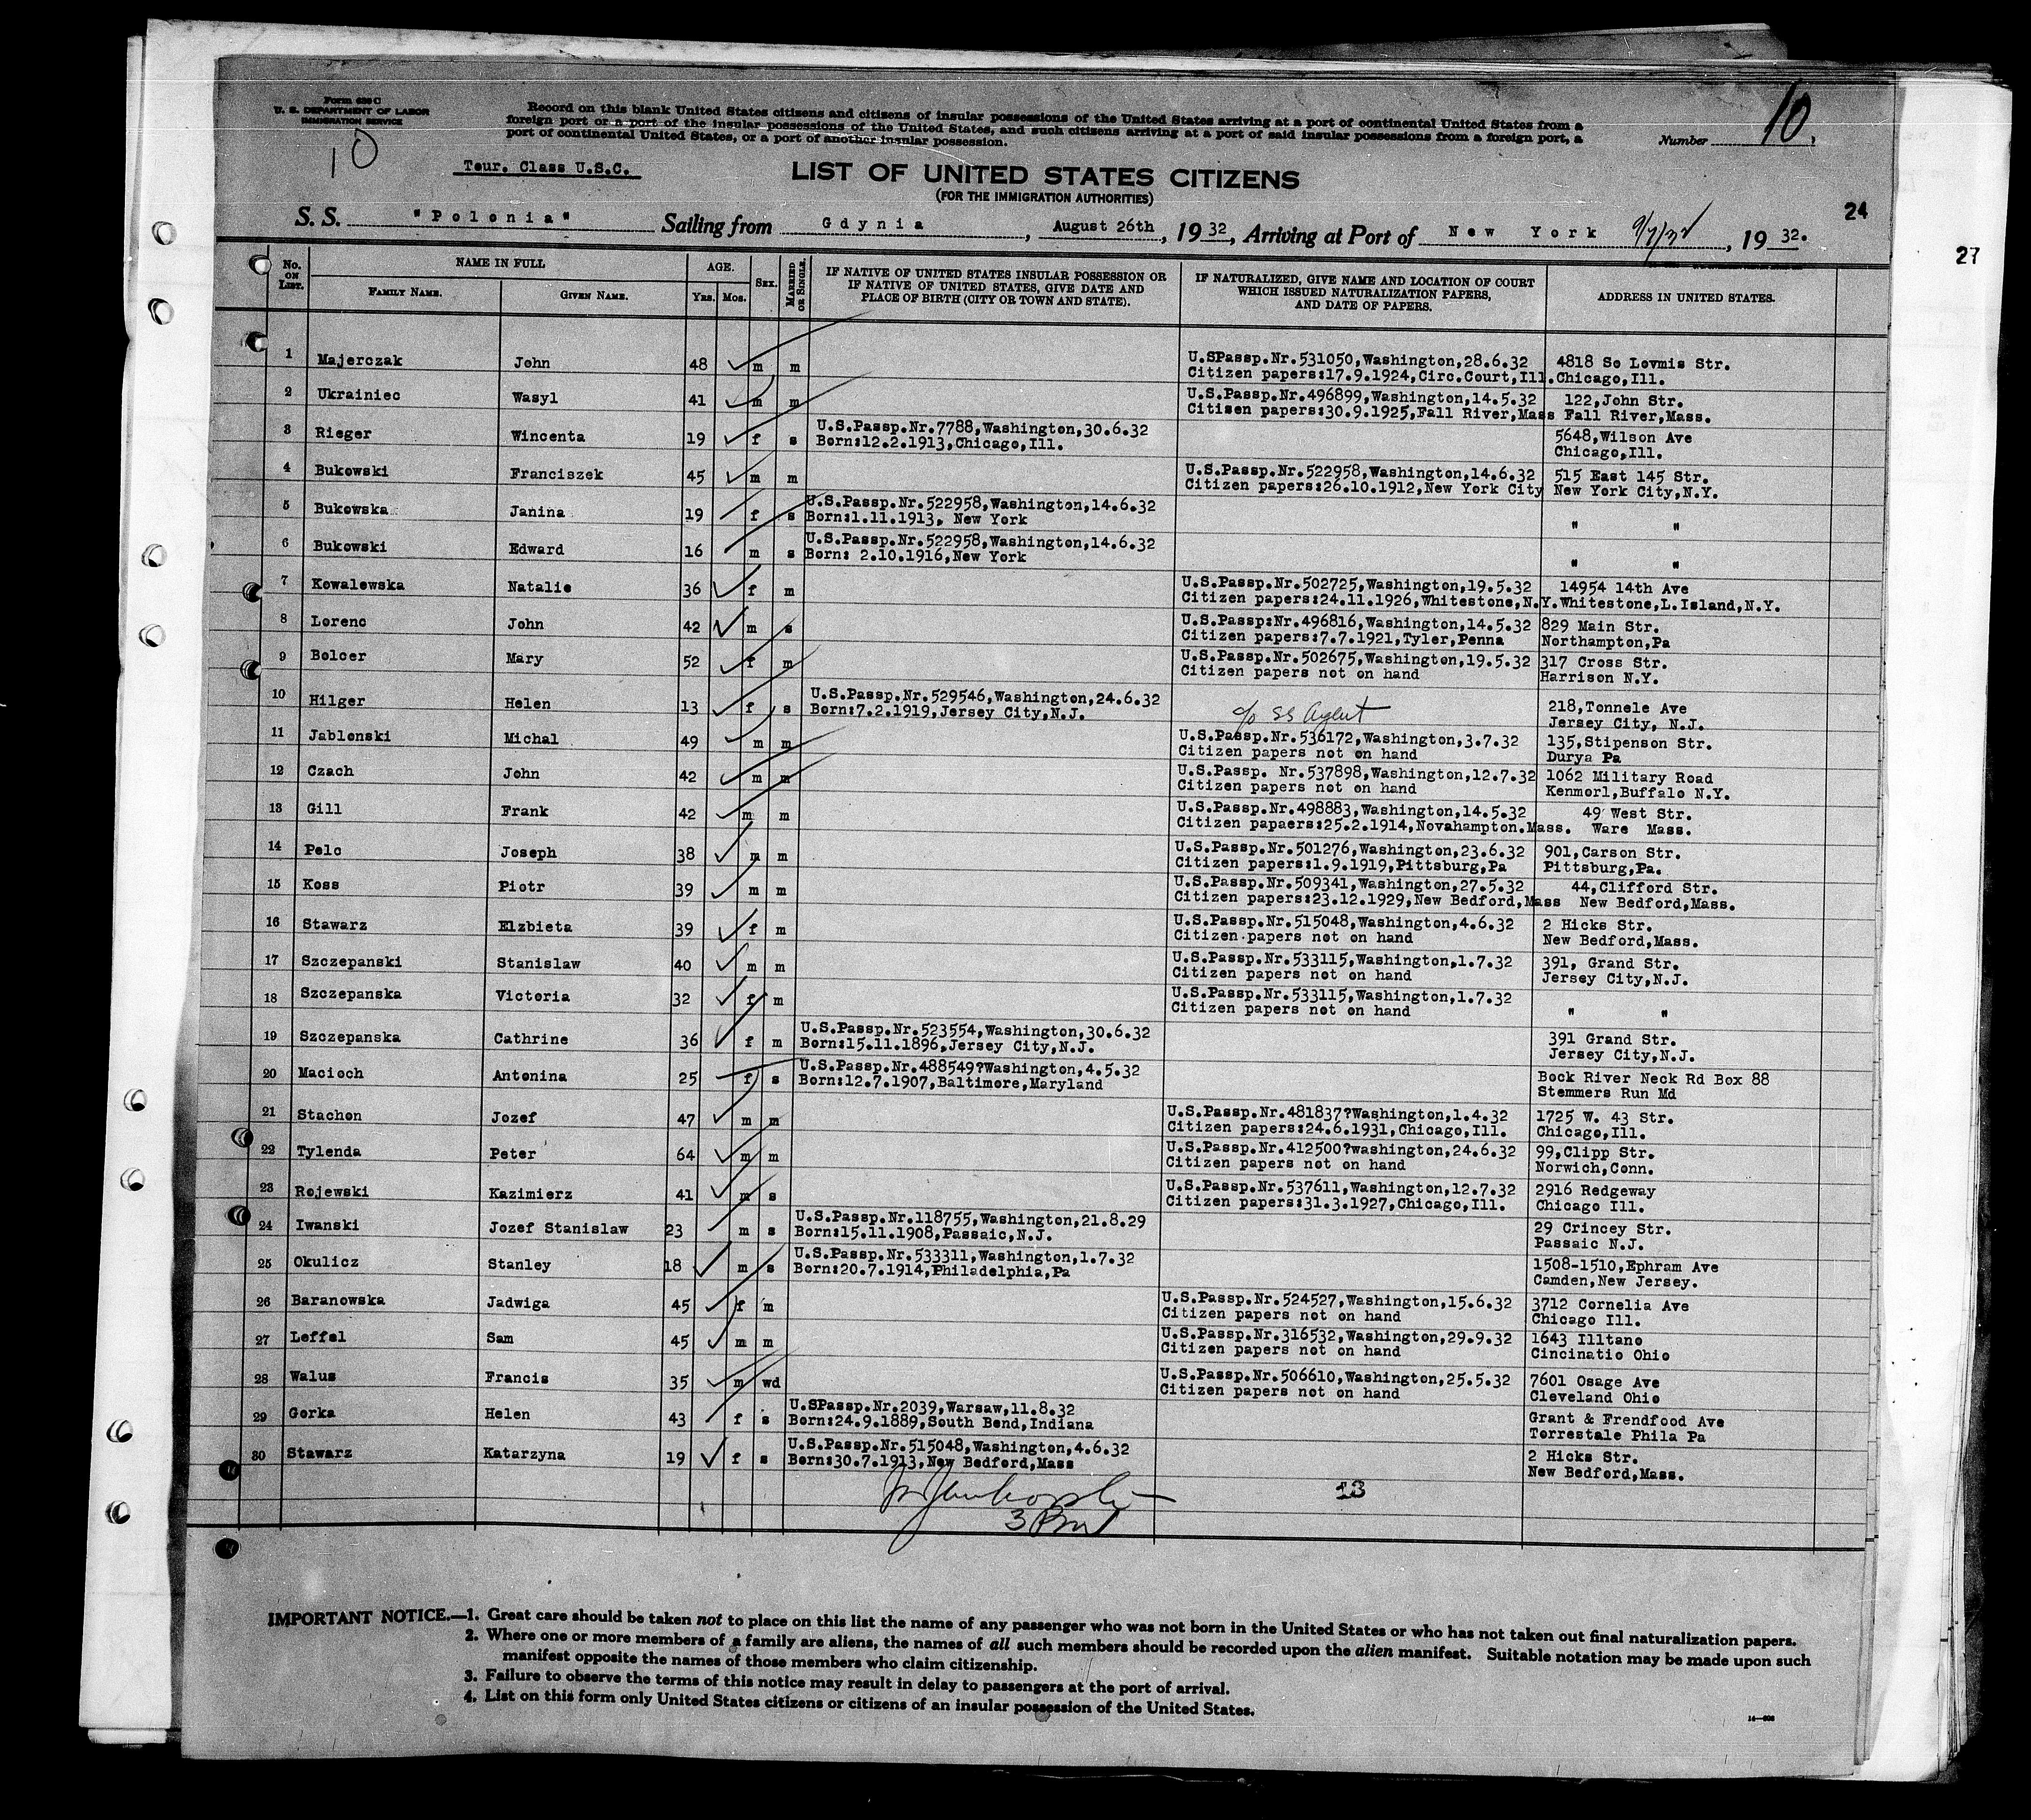 Form 630 C
U. S. DEPARTMENT OF LABOR
IMMIGRATION SERVICE
10
Record on this blank United States citizens and citizens of insular possessions of the United States arriving at a port of continental United States from a
foreign port or a port of the insular possessions of the United States, and such citizens arriving at a port of said insular possessions from a foreign port, a
port of continental United States, or a port of another insular possession.
Number 10.
Tour. Class U.S.C.
LIST OF UNITED STATES CITIZENS
(FOR THE IMMIGRATION AUTHORITIES)
24
S. S. "Polonia" Sailing from Gdynia, August 26th, 1932, Arriving at Port of New York 9/7/32, 1932.
27
No. ON LIST. NAME IN FULL AGE. SEX. MARRIED OR SINGLE. IF NATIVE OF UNITED STATES INSULAR POSSESSION OR IF NATIVE OF UNITED STATES, GIVE DATE AND PLACE OF BIRTH (CITY OR TOWN AND STATE). IF NATURALIZED, GIVE NAME AND LOCATION OF COURT WHICH ISSUED NATURALIZATION PAPERS, AND DATE OF PAPERS. ADDRESS IN UNITED STATES.
FAMILY NAME. GIVEN NAME. YRS. MOS.
1 Majerczak John 48 m m U.SPassp.Nr.531050,Washington,28.6.32 4818 So Lovmis Str.
Citizen papers:17.9.1924,Circ.Court,Ill. Chicago,Ill.
2 Ukrainiec Wasyl 41 m m U.S.Passp.Nr.496899,Washington,14.5.32 122,John Str.
Citisen papers:30.9.1925,Fall River,Mass Fall River,Mass.
3 Rieger Wincenta 19 f s U.S.Passp.Nr.7788,Washington,30.6.32 5648,Wilson Ave
Born:12.2.1913,Chicago,Ill. Chicago,Ill.
4 Bukowski Franciszek 45 m m U.S.Passp.Nr.522958,Washington,14.6.32 515 East 145 Str.
Citizen papers:26.10.1912,New York City New York City,N.Y.
5 Bukowska Janina 19 f s U.S.Passp.Nr.522958,Washington,14.6.32
Born:1.11.1913, New York " "
6 Bukowski Edward 16 m s U.S.Passp.Nr.522958,Washington,14.6.32
Born: 2.10.1916,New York " "
7 Kowalewska Natalie 36 f m U.S.Passp.Nr.502725,Washington,19.5.32 14954 14th Ave
Citizen papers:24.11.1926,Whitestone,N.Y. Whitestone,L.Island,N.Y.
8 Lorenc John 42 m s U.S.Passp:Nr.496816,Washington,14.5.32 829 Main Str.
Citizen papers:7.7.1921,Tyler,Penna Northampton,Pa
9 Bolcer Mary 52 f m U.S.Passp.Nr.502675,Washington,19.5.32 317 Cross Str.
Citizen papers not on hand Harrison N.Y.
10 Hilger Helen 13 f s U.S.Passp.Nr.529546,Washington,24.6.32 218,Tonnele Ave
Born:7.2.1919,Jersey City,N.J. c/o SS Agent Jersey City, N.J.
11 Jablonski Michal 49 m m U.S.Passp.Nr.536172,Washington,3.7.32 135,Stipenson Str.
Citizen papers not on hand Durya Pa
12 Czach John 42 m m U.S.Passp. Nr.537898,Washington,12.7.32 1062 Military Road
Citizen papers not on hand Kenmorl,Buffalo N.Y.
13 Gill Frank 42 m m U.S.Passp.Nr.498883,Washington,14.5.32 49 West Str.
Citizen papaers:25.2.1914,Novahampton.Mass. Ware Mass.
14 Pelc Joseph 38 m m U.S.Passp.Nr.501276,Washington,23.6.32 901,Carson Str.
Citizen papers:1.9.1919,Pittsburg,Pa Pittsburg,Pa.
15 Koss Piotr 39 m m U.S.Passp.Nr.509341,Washington,27.5.32 44,Clifford Str.
Citizen papers:23.12.1929,New Bedford,Mass New Bedford,Mass.
16 Stawarz Elzbieta 39 f m U.S.Passp.Nr.515048,Washington,4.6.32 2 Hicks Str.
Citizen papers not on hand New Bedford,Mass.
17 Szczepanski Stanislaw 40 m m U.S.Passp.Nr.533115,Washington,1.7.32 391, Grand Str.
Citizen papers not on hand Jersey City,N.J.
18 Szczepanska Victoria 32 f m U.S.Passp.Nr.533115,Washington,1.7.32
Citizen papers not on hand " "
19 Szczepanska Cathrine 36 f m U.S.Passp.Nr.523554,Washington,30.6.32 391 Grand Str.
Born:15.11.1896,Jersey City,N.J. Jersey City,N.J.
20 Macioch Antonina 25 f s U.S.Passp.Nr.488549?Washington,4.5.32 Bock River Neck Rd Box 88
Born:12.7.1907,Baltimore,Maryland Stemmers Run Md
21 Stachon Jozef 47 m m U.S.Passp.Nr.481837?Washington,1.4.32 1725 W. 43 Str.
Citizen papers:24.6.1931,Chicago,Ill. Chicago,Ill.
22 Tylenda Peter 64 m m U.S.Passp.Nr.412500?washington,24.6.32 99,Clipp Str.
Citizen papers not on hand Norwich,Conn.
23 Rojewski Kazimierz 41 m s U.S.Passp.Nr.537611,Washington,12.7.32 2916 Redgeway
Citizen papers:31.3.1927,Chicago,Ill. Chicago Ill.
24 Iwanski Jozef Stanislaw 23 m s U.S.Passp.Nr.118755,Washington,21.8.29 29 Crincey Str.
Born:15.11.1908,Passaic,N.J. Passaic N.J.
25 Okulicz Stanley 18 m s U.S.Passp.Nr.533311,Washington,1.7.32 1508-1510,Ephram Ave
Born:20.7.1914,Philadelphia,Pa Camden,New Jersey.
26 Baranowska Jadwiga 45 f m U.S.Passp.Nr.524527,Washington,15.6.32 3712 Cornelia Ave
Citizen papers not on hand Chicago Ill.
27 Leffel Sam 45 m m U.S.Passp.Nr.316532,Washington,29.9.32 1643 Illtano
Citizen papers not on hand Cincinatio Ohio
28 Walus Francis 35 m wd U.S.Passp.Nr.506610,Washington,25.5.32 7601 Osage Ave
Citizen papers not on hand Cleveland Ohio
29 Gorka Helen 43 f s U.SPassp.Nr.2039,Warsaw,11.8.32 Grant & Frendfood Ave
Born:24.9.1889,South Bend,Indiana Torrestale Phila Pa
30 Stawarz Katarzyna 19 f s U.S.Passp.Nr.515048,Washington,4.6.32 2 Hicks Str.
Born:30.7.1913,New Bedford,Mass New Bedford,Mass.
13
3
IMPORTANT NOTICE.—1. Great care should be taken not to place on this list the name of any passenger who was not born in the United States or who has not taken out final naturalization papers.
2. Where one or more members of a family are aliens, the names of all such members should be recorded upon the alien manifest. Suitable notation may be made upon such
manifest opposite the names of those members who claim citizenship.
3. Failure to observe the terms of this notice may result in delay to passengers at the port of arrival.
4. List on this form only United States citizens or citizens of an insular possession of the United States.